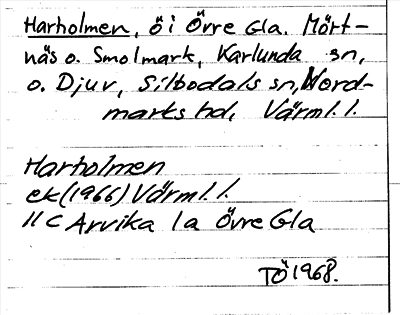 Harholmen, ö i Övre Gla. Mört-
näs o. Smolmark, Karlunda sn,
o. Djuv, Silbodals sn, Nord-
marks hd, Värml. l.
Harholmen
ek (1966) Värml. l.
11 C Arvika 1a Övre Gla
TÖ 1968.